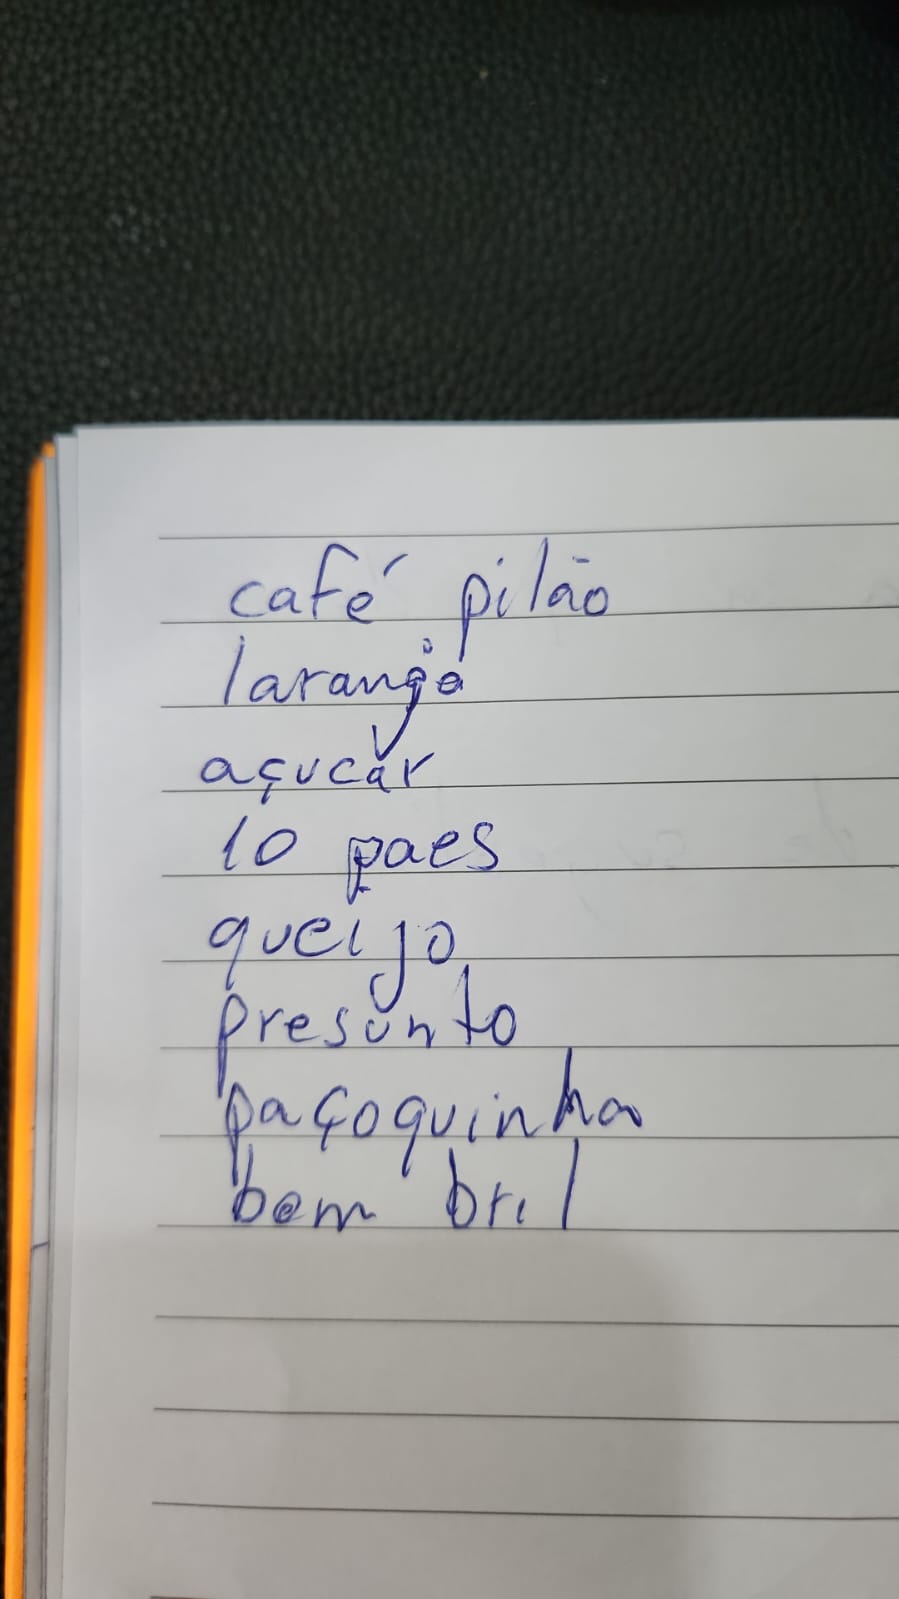 café pilão
laranja
açucar
10 paes
queijo
presunto
paçoquinha
bom bril